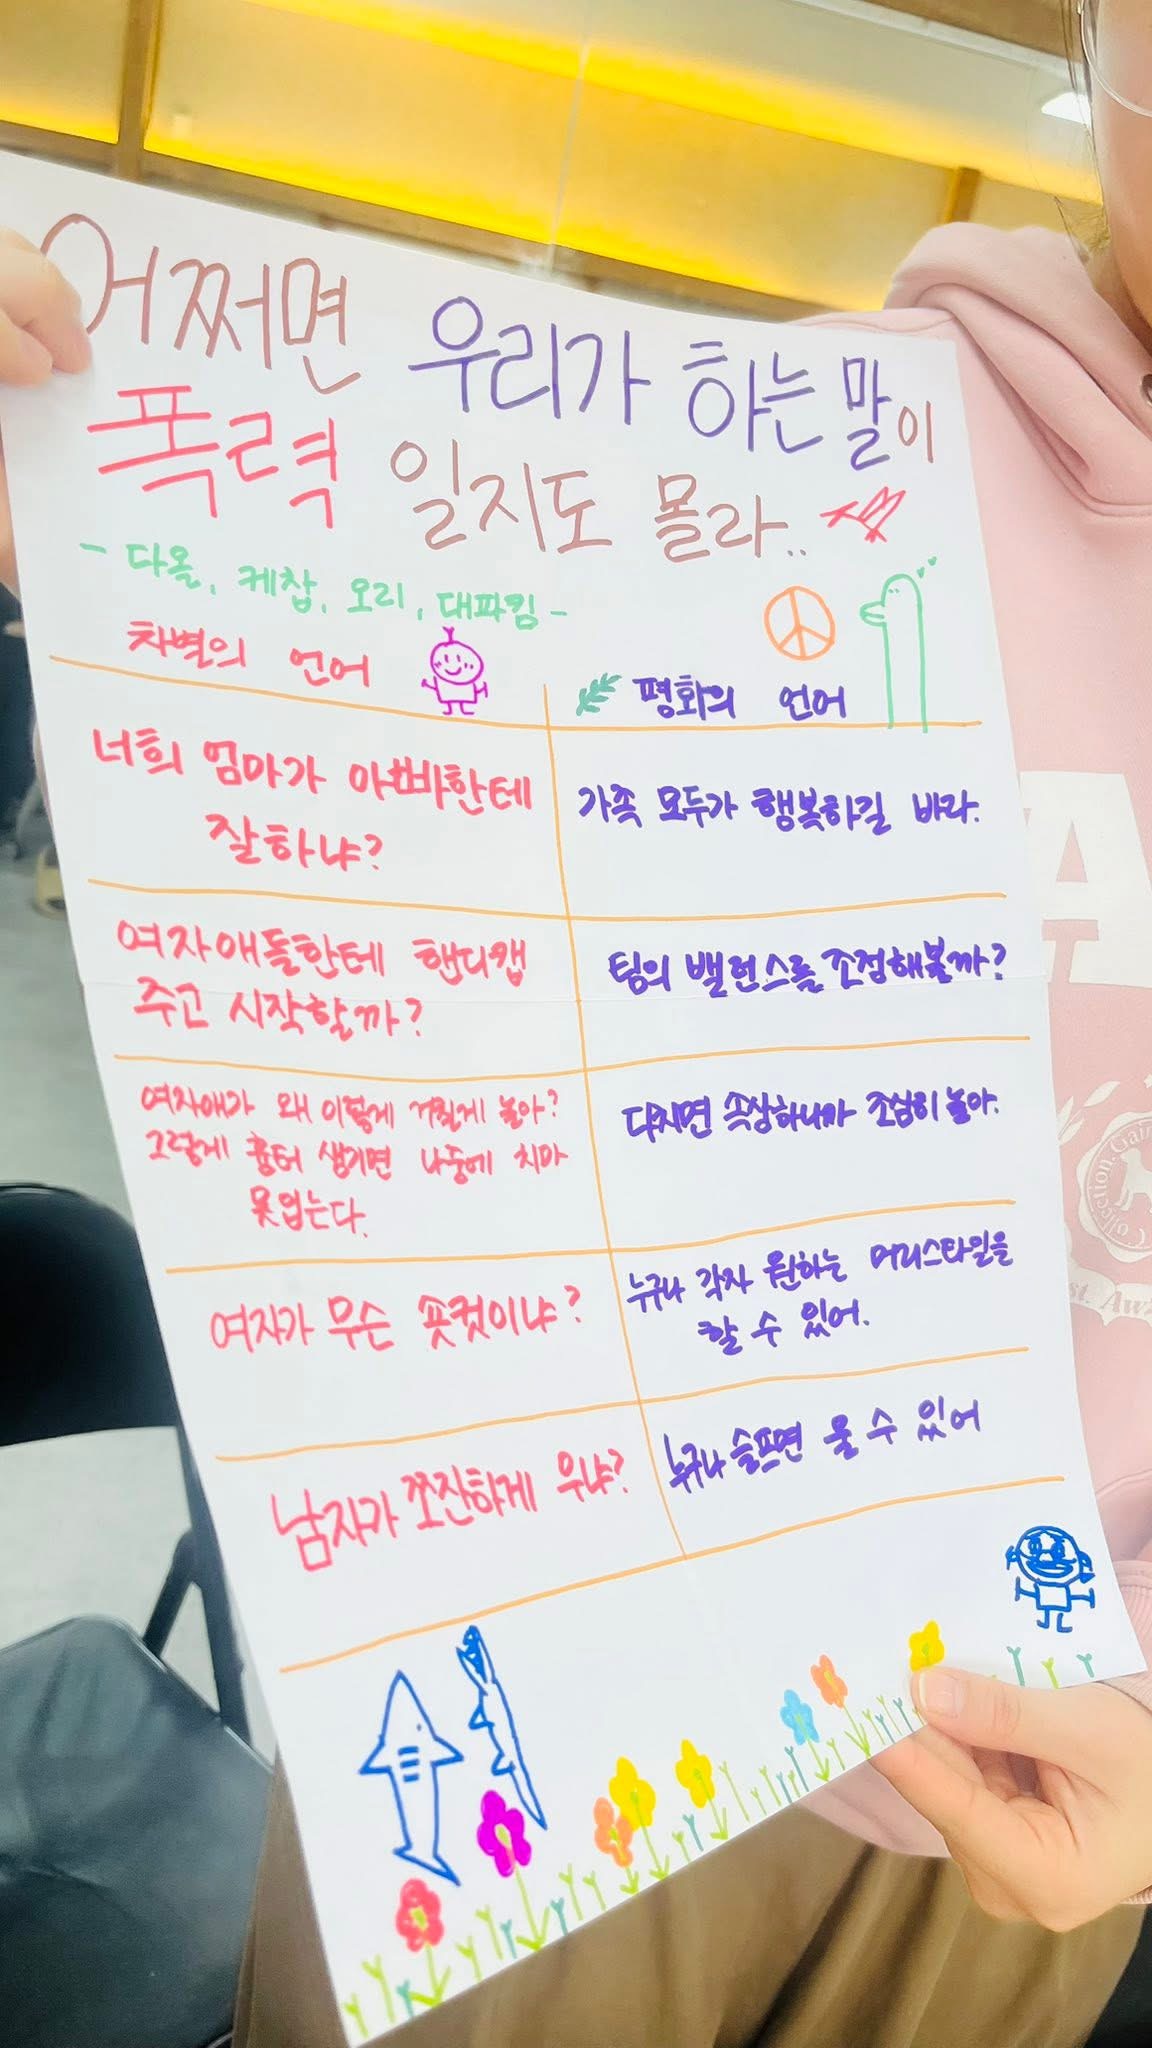 어쩌면 우리가 하는 말이
폭력 일지도 몰라..
- 다올, 케찹, 오리, 대파킴 -
차별의 언어
평화의 언어
너희 엄마가 아빠한테
잘하냐?
가족 모두가 행복하길 바라.
여자애들한테 핸디캡
주고 시작할까?
팀의 밸런스를 조정해볼까?
여자애가 왜 이렇게 거칠게 놀아?
그렇게 흉터 생기면 나중에 치마
못입는다.
다치면 속상하니까 조심히 놀아.
여자가 무슨 숏컷이냐?
누구나 각자 원하는 머리스타일을
할 수 있어.
남자가 쪼잔하게 우냐?
누구나 슬프면 울 수 있어
A
Collection. Gain
st. Aw